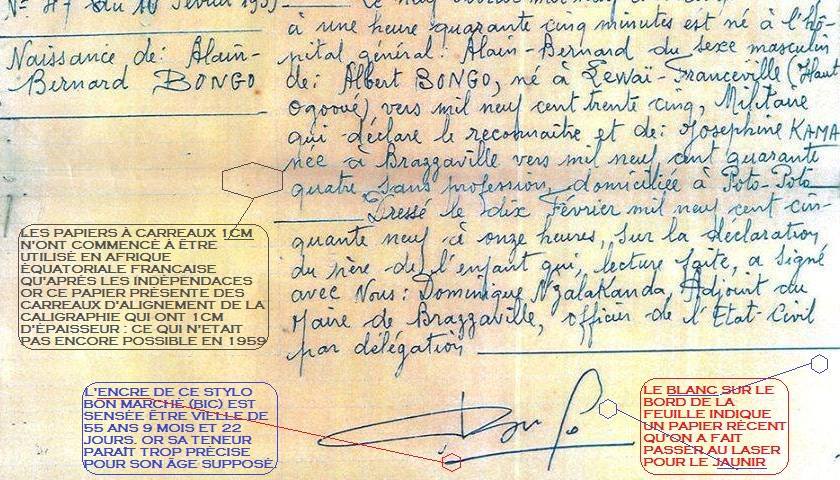 N° 47 du 10 Février 1959
à une heure quarante cinq minutes est né à l'hô-
pital général : Alain-Bernard du sexe masculin
de : Albert BONGO, né à Lewaï-Franceville (Haut
Ogooué) vers mil neuf cent trente cinq, Militaire
qui déclare le reconnaître et de : Josephine KAMA
née à Brazzaville vers mil neuf cent quarante
quatre, sans profession, domiciliée à Poto-Poto
Dressé le dix Février mil neuf cent cin-
quante neuf à onze heures, Sur la déclaration
du père de l'enfant qui, lecture faite, a signé
avec Nous : Dominique Nzalakanda, Adjoint du
Maire de Brazzaville, officier de l'Etat-Civil
par délégation
Naissance de : Alain-
Bernard BONGO
LES PAPIERS À CARREAUX 1CM
N'ONT COMMENCÉ À ÊTRE
UTILISÉ EN AFRIQUE
ÉQUATORIALE FRANCAISE
QU'APRÈS LES INDÉPENDACES
OR CE PAPIER PRÉSENTE DES
CARREAUX D'ALIGNEMENT DE LA
CALIGRAPHIE QUI ONT 1CM
D'ÉPAISSEUR : CE QUI N'ETAIT
PAS ENCORE POSSIBLE EN 1959
L'ENCRE DE CE STYLO
BON MARCHÉ (BIC) EST
SENSÉE ÊTRE VIELLE DE
55 ANS 9 MOIS ET 22
JOURS. OR SA TENEUR
PARAÎT TROP PRÉCISE
POUR SON ÂGE SUPPOSÉ
LE BLANC SUR LE
BORD DE LA
FEUILLE INDIQUE
UN PAPIER RÉCENT
QU'ON A FAIT
PASSER AU LASER
POUR LE JAUNIR